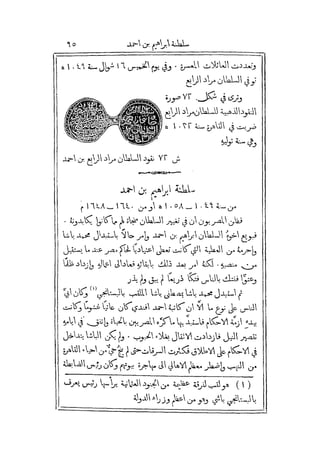 سلطنة ابراهيم بن احمد ٦٥
وتعددت العائلات المعسرة . وفي يوم الخميس ١٦ شوال سنة ١٠٤٦ ه
توفي السلطان مراد الرابع
وترى في شكل ٧٢ صورة
النقود الذهبية للسلطان مراد الرابع
ضربت في القاهرة سنة ١٠٣٢ ه
وهي سنة توليه
ش ٧٢ نقود السلطان مراد الرابع بن احمد
سلطنة ابراهيم بن احمد
من سنة ١٠٤٩ — ١٠٥٨ ه او من ١٦٤٠ — ١٦٤٨ م
فظن المصريون ان في تغيير السلطان نجاة لم مما كانوا يكابدونه .
فبويع اخوه السلطان ابراهيم بن احمد وامر حالاً باستبدال محمد باشا
واحرمه من العطية التي كانت تعطى اعتيادياً لحاكم مصر عند ما يستقيل
من منصبه . لكنه امر بعد ذلك بابقائه فعاد الى اعماله وازداد ظلماً
وعتواً ففتك بالناس فتكاً ذريعاً لم يبق ولم يذر
ثم استبدل محمد باشا بمصطفى باشا الملقب بالبستانجي (١) وكان امن
الناس على نوع ما الا ان كاتبه احمد افندي كان عاتياً غشوماً وكانت
بيده ازمة الاحكام فاستبد بها ما كره المصريين بالحياة واتفق في ايامه
تقصير النيل فازدادت الاثقال بغلاء الحبوب . ولم يكن الباشا يتداخل
في الاحكام على الاطلاق فكثرت السرقات حتى لم ينج حي من احياء القاهرة
من النهب واضطر معظم الاهالي الى مهاجرة بيوتهم وكان رئيس الضابطة
(١) هو لقب لفرقة عظيمة من الجنود العثمانية يرأسها رئيس يعرف
بالبستانجي باشي وهو من اعظم وزراء الدولة